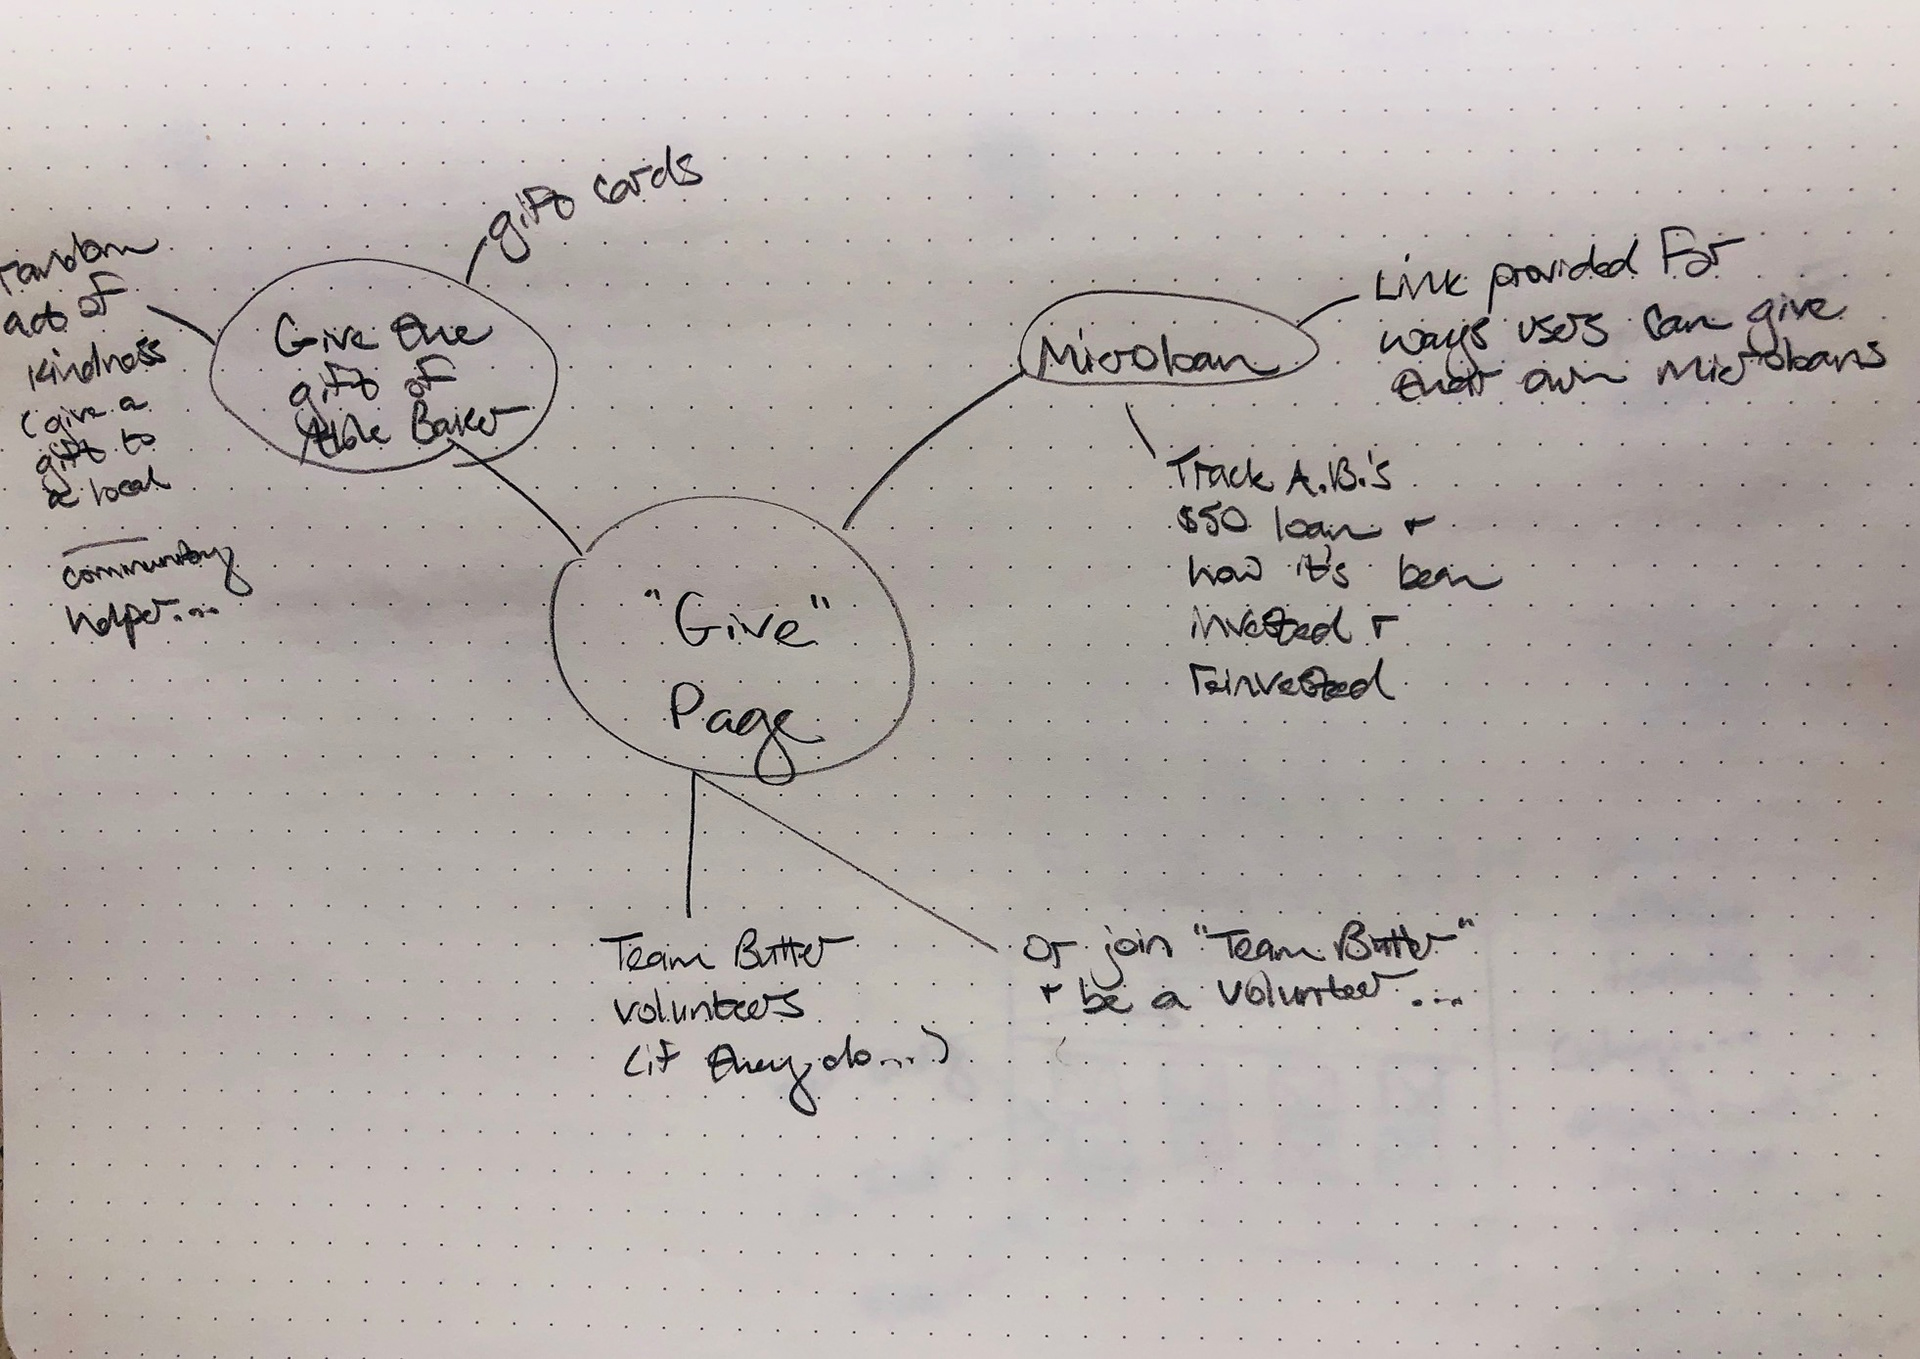 gift cards
random
act of
kindness
(give a
gift to
a local
community
helper...
Give the
gift of
Able Baker
Microloan
Link provided for
ways users can give
their own microloans
Track A.B.'s
$50 loan +
how it's been
invested +
reinvested
"Give"
Page
Team Butter
volunteers
(if they do...)
or join "Team Butter"
+ be a volunteer...